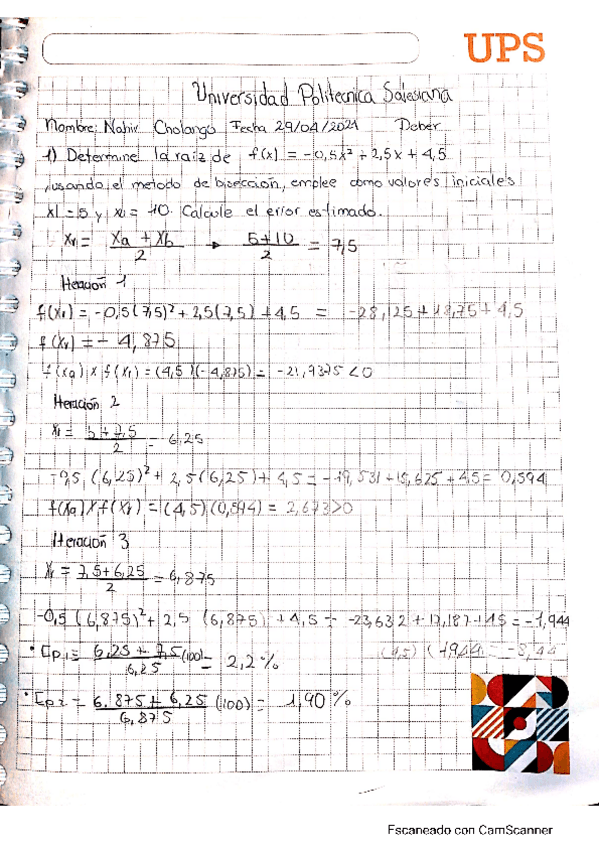 UPS
Universidad Politecnica Salesiana
Nombre: Nahir Cholango Fecha 29/04/2021 Deber
1) Determine la raíz de f(x) = -0,5x² + 2,5x + 4,5
usando el metodo de bisección, emplee como valores iniciales
xl = 5 y xu = 10. Calcule el error estimado.
Xr = Xa + Xb / 2 → 5+10 / 2 = 7,5
Iteración 1
f(Xr) = -0,5(7,5)² + 2,5(7,5) + 4,5 = -28,125 + 18,75 + 4,5
f(Xr) = -4,875
f(xa) x f(xr) = (4,5)(-4,875) = -21,9375 <0
Iteración 2
Xr = 5+7,5 / 2 = 6,25
-0,5 (6,25)² + 2,5(6,25) + 4,5 = -19,531 + 15,625 + 4,5 = 0,594
f(Xa) x f(Xr) = (4,5)(0,594) = 2,673>0
Iteración 3
Xr = 7,5+6,25 / 2 = 6,875
-0,5 (6,875)² + 2,5 (6,875) + 4,5 = -23,632 + 17,187 + 4,5 = -1,944
(4,5) (-1,944 = -8,74
• Ep1 = 6,25 + 7,5 / 6,25 (100) = 2,2 %
• Ep2 = 6.875 + 6,25 / 6,875 (100) = 1,90 %
Escaneado con CamScanner